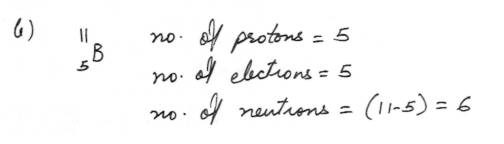 6) ¹¹₅B no. of protons = 5
no. of electrons = 5
no. of neutrons = (11-5) = 6